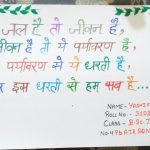 जल है तो जीवन है,
जीवन है तो ये पर्यावरण है,
पर्यावरण से ये धरती है,
और इस धरती से हम सब हैं...
NAME-
ROLL NO-
CLASS-